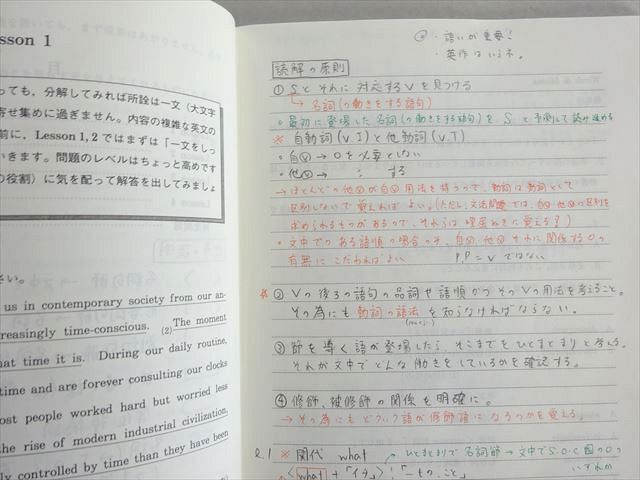 sson 1
っても，分解してみれば所詮は一文（大文字
寄せ集めに過ぎません。内容の複雑な英文の
前に，Lesson 1, 2 ではまずは「一文をしっ
いきます。問題のレベルはちょっと高めです
の役割）に気を配って解答を出してみましょ
さい。
us in contemporary society from our an-
reasingly time-conscious. (2)The moment
hat time it is. During our daily routine,
time and are forever consulting our clocks
ost people worked hard but worried less
the rise of modern industrial civilization,
ly controlled by time than they have been
・語いが重要!
・英作はいらネ。
読解の原則
① Sとそれに対応するVを見つける
→名詞(の働きをする語句)
・最初に登場した名詞(の働きをする語句)を、Sと予測して読み進める
※ 自動詞(V.I)と他動詞(V.T)
・自Ⓥ→Oを必要としない
・他Ⓥ→ 〃 する
→ほとんどの他Ⓥが自Ⓥ用法を持つので、動詞は動詞として
区別しないで覚えればよい。(ただし、文法問題では、自Ⓥ・他Ⓥの区別を
求められるものがあるので、それらは
・文中でのある語順の場合のみ、自Ⓥ・他Ⓥそれに関係するOの
有無にこだわればよい P.P=Vではない
☆② Vの後ろの語句の品詞や語順がそのVの用法を考えること。
その為にも動詞の語法を知らなければならない。
③ 節を導く語が登場したら、そこまでをひとまとまりと考え、
それが文中でどんな働きをしているかを確認する。
④ 修飾、被修飾の関係を明確に。
→その為にもどういう語が修飾語になるのかを覚える。
2.1 ※ 関代 what → ひとまとまりで名詞節→文中でS.O.C.前のOの
いずれか
what +「イ